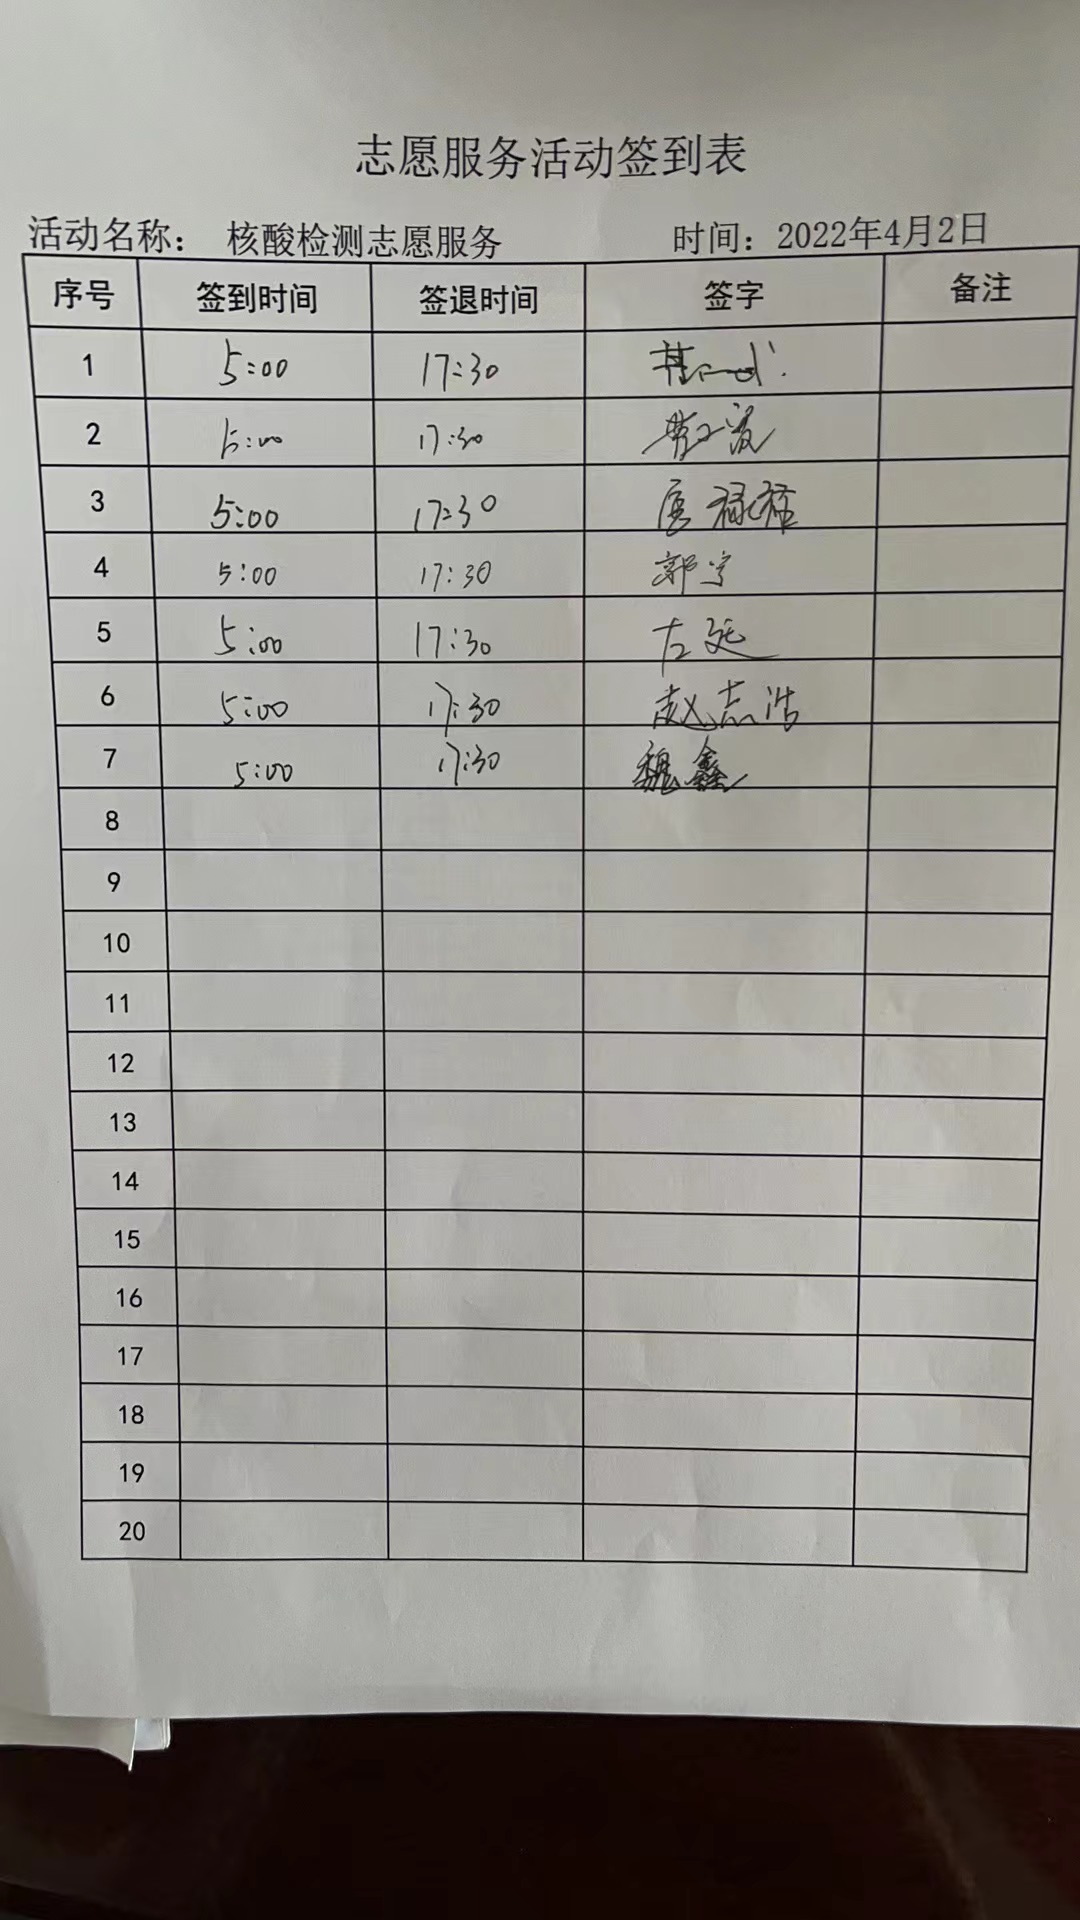 志愿服务活动签到表
活动名称： 核酸检测志愿服务 时间：2022年4月2日
序号 签到时间 签退时间 签字 备注
1 5:00 17:30
2 5:00 17:30
3 5:00 17:30 唐禄禚
4 5:00 17:30 郭宁
5 5:00 17:30 左延
6 5:00 17:30 赵志浩
7 5:00 17:30 魏鑫
8
9
10
11
12
13
14
15
16
17
18
19
20